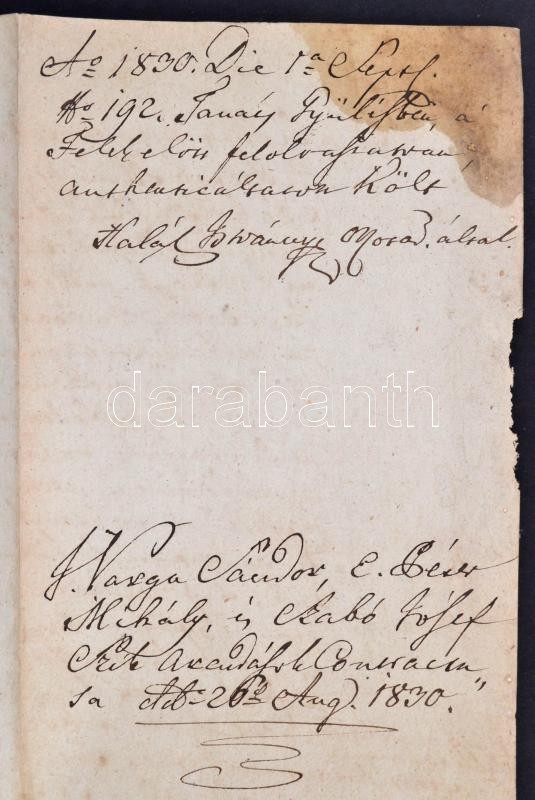 Ao 1830. Die 1a Sept.
No 192. Tanács Gyülésben, a
Felek előtt felolvastatván,
authenticáltatott Költ
Halál István Not által.
darabanth
I. Varga Sándor, E.
Mihály, és Szabó Jósef
Contractu
sa Adto 26a Aug. 1830."